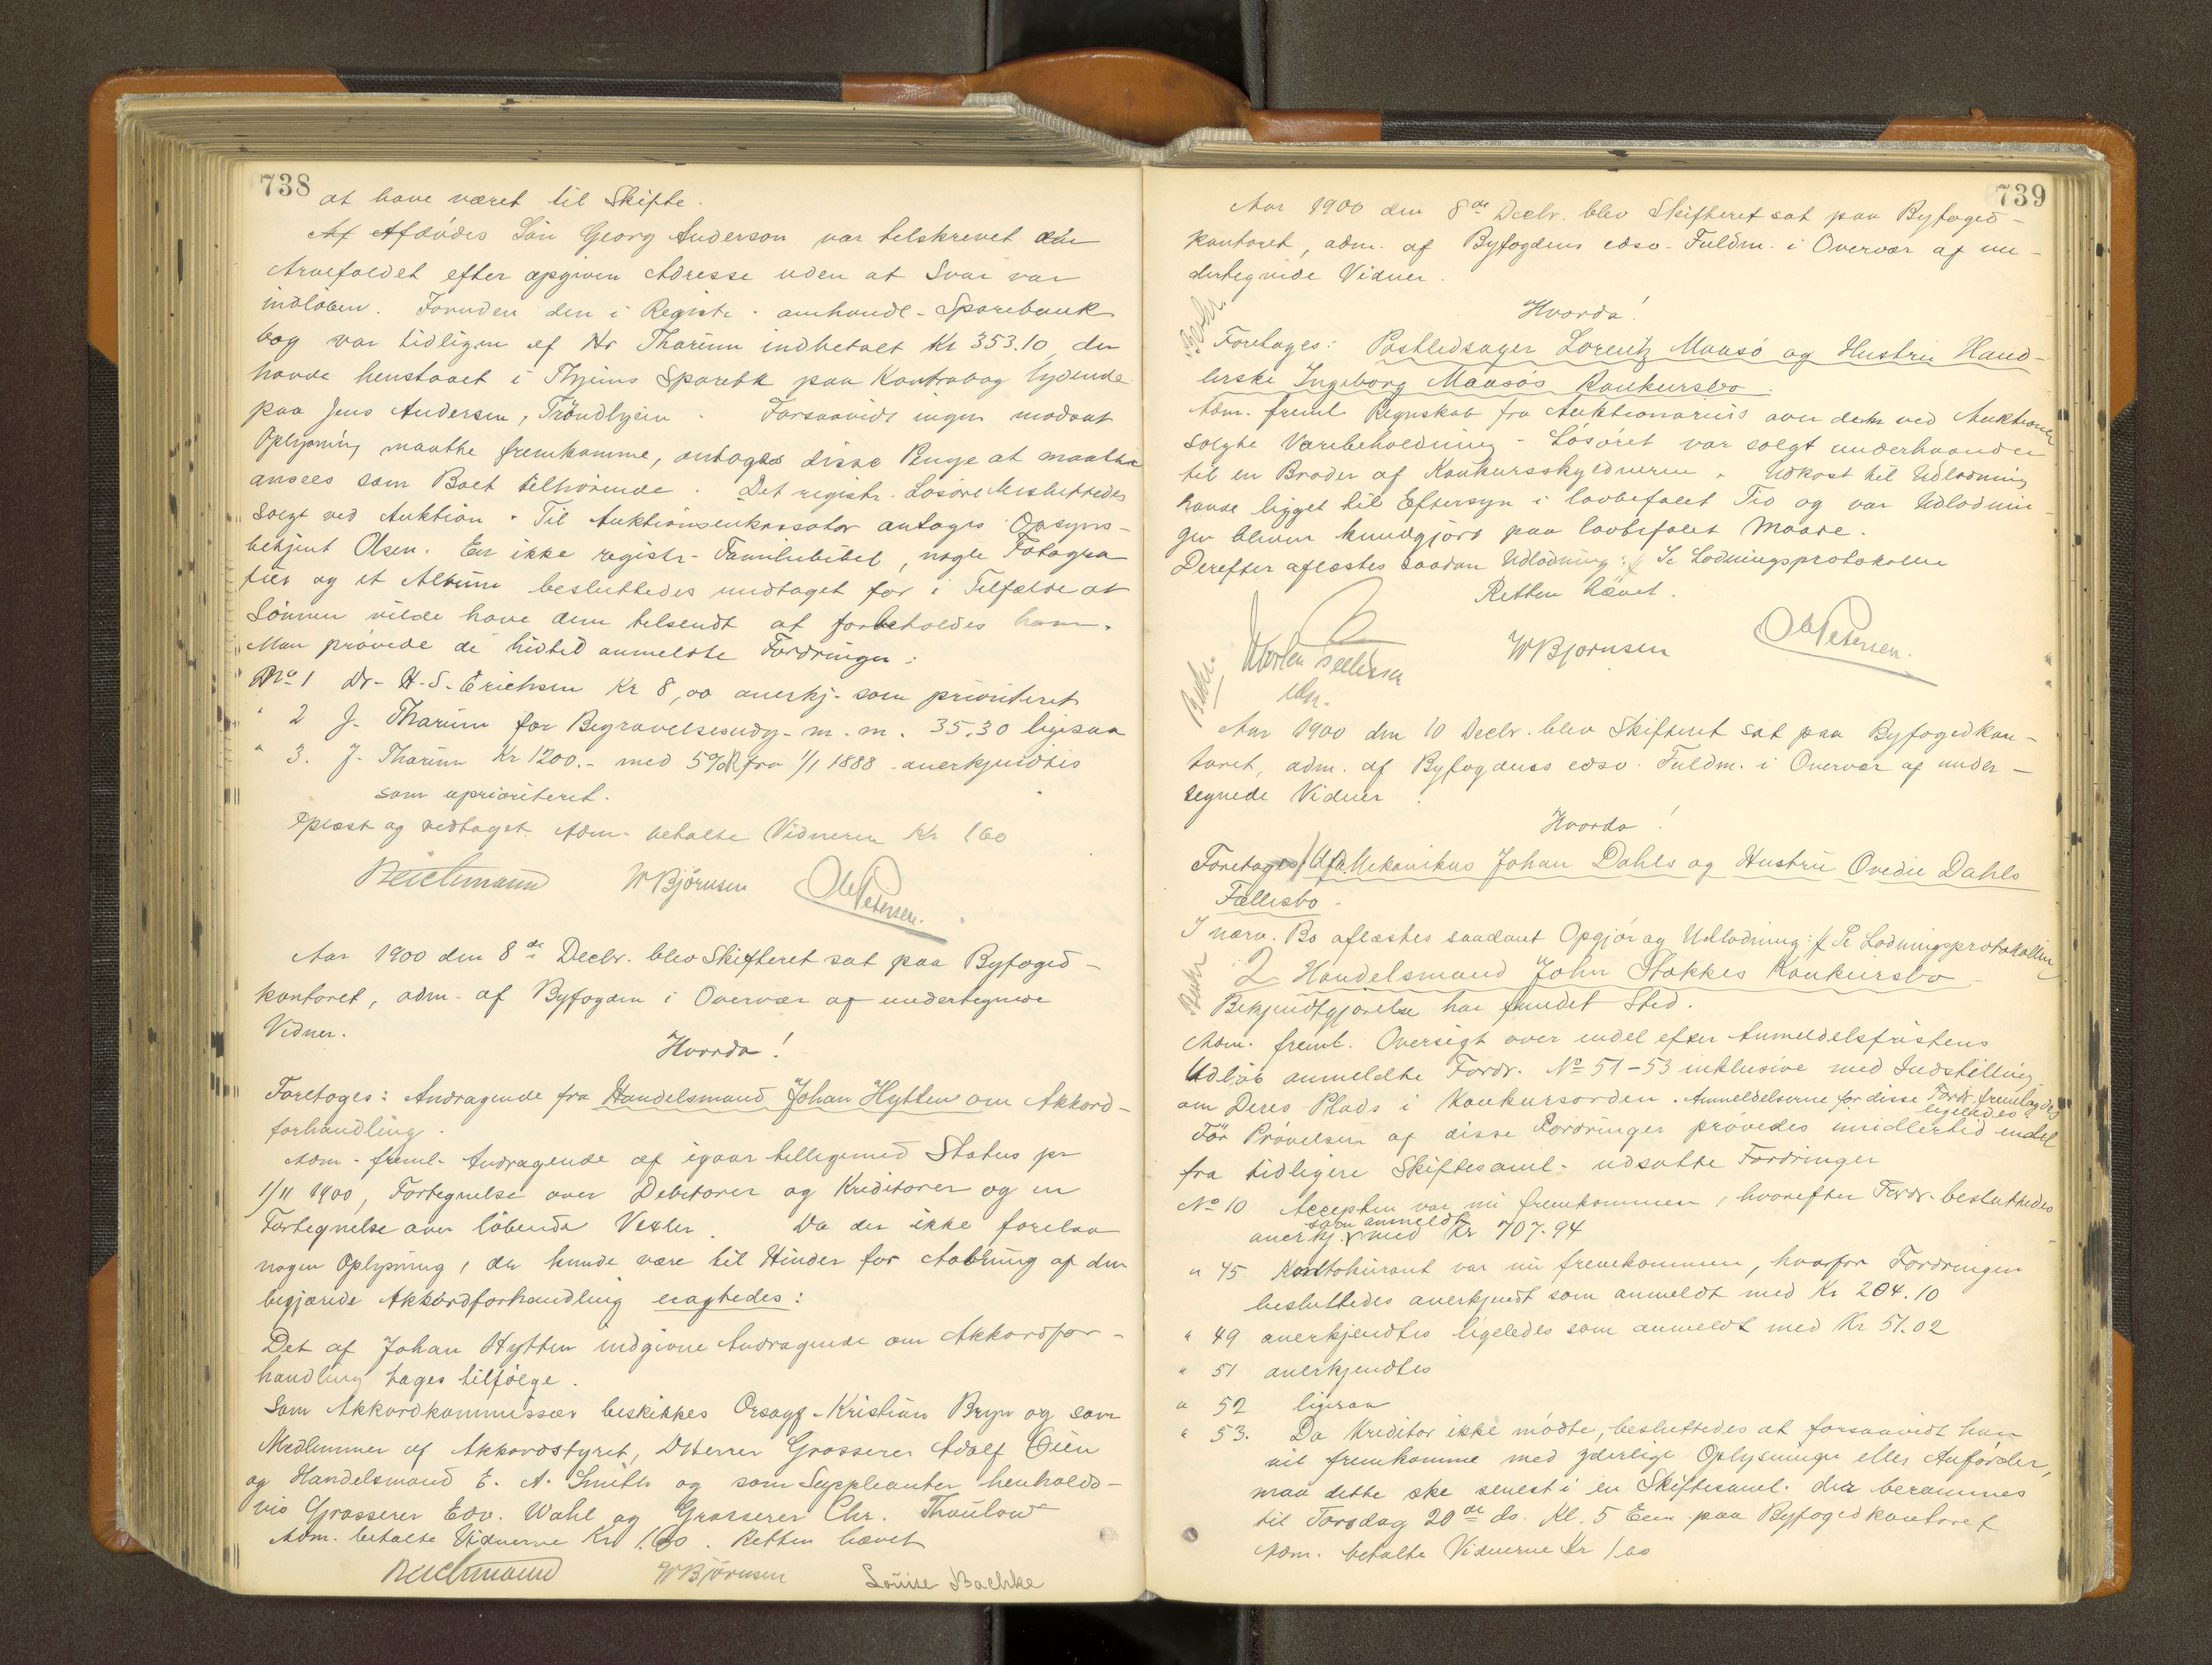 738
at have været til Skifte.
Af Afdødes Søn Georg Anderson var telskrevet om
Arvefaldet efter opgiven Adresse uden at Svar var
indløben. Foruden den i Registr. omhandl. Sparebank
bog var tidligen af Hr Tharum indbetalt Kr 353.10, der
havde henstaaet i Thjems Sparebk paa Kontrabog lydende
paa Jens Andersen, Trondhjem. Forsaavidt ingen modsat
Oplysning maatte fremkomme, antoges disse Penge at maatte
ansees som Boet tilhørende. Det registr. Løsøre besluttedes
solgt ved Auktion. Til Auktionsinkassator antoges Opsyns-
betjent Olsen. En ikke registr. Familiebibel, nogle Fotogra
fier og et Album besluttedes undtaget for i Tilfælde at
Sønnen vilde have dem tilsendt at forbeholdes ham.
Man prøvede de hidtil anmeldte Fordringer:
No 1 Dr. H. S. Erichsen Kr 8,00 anerkj. som prioriteret
" 2 J. Tharum for Begravelsesudg. m. m. 35.30 ligesaa
" 3. J. Tharum Kr 1200.- med 5%R fra 1/1 1888 anerkjendtes
som uprioriteret.
Oplæst og vedtaget. Adm. betalte Vidnerne Kr 1.60
Reichmann W Bjørnsen Ole Petersen.
Aar 1900 den 8de Decbr. blev Skifteret sat paa Byfoged-
kontoret, adm. af Byfogden i Overvær af undertegnede
Vidner.
Hvorda!
Foretoges: Andragende fra Handelsmand Johan Hytten om Akkord-
forhandling.
Adm. freml. Andragende af igaar tilligemed Status pr
1/11 1900, Fortegnelse over Debitorer og Kreditorer og en
Fortegnelse over løbende Vexler. Da der ikke forelaa
nogen Oplysning, der kunde være til Hinder for Aabning af den
begjærede Akkordforhandling eragtedes:
Det af Johan Hytten indgivne Andragende om Akkordfor-
handling tages tilfølge.
Som Akkordkommissær beskikkes Orsagf. Kristian Bryn og som
Medlemmer af Akkordstyret, DHerrer Grosserer Adolf Øien
og Handelsmand E. A. Smith og som Suppleanter henholds-
vis Grosserer Edv. Wahl og Grosserer Chr. Thaulow
Adm. betalte Vidnerne Kr 1.60. Retten hævet
Reichmann W Bjørnsen Louise Bachke
739
Aar 1900 den 8de Decbr. blev Skifteret sat paa Byfoged-
kontoret, adm. af Byfogdens edsv. Fuldm. i Overvær af un-
dertegnede Vidner.
Hvorda!
Foretages: Postledsager Lorentz Maasø og Hustru Hand-
lerske Ingeborg Maasøs Konkursbo.
Adm. freml. Regnskab fra Auktionarius over den ved Auktionen
solgte Varebeholdning - Løsøret var solgt underhaanden
til en Broder af Konkursskyldneren. Udkast til Udlodning
havde ligget til Eftersyn i lovbefalet Tid og var Udlodnin
gen bleven kundgjort paa lovbefalet Maade.
Derefter aflæstes saadan Udlodning: ſ Se Lodningsprotokollen
Retten hævet.
W Bjørnsen Ole Petersen.
Aar 1900 den 10 Decbr. blev Skifteret sat paa Byfogedkon-
toret, adm. af Byfogdens edsv. Fuldm. i Overvær af under-
tegnede Vidner.
Hvorda!
Foretages 1 Afd. Mekanikus Johan Dahls og Hustru Ovedie Dahls
Fællesbo.
I nærv. Bo aflæstes saadant Opgjør og Udlodning: ſ Se Lodningsprotokollen
2 Handelsmand John Stokkes Konkursbo
Bekjendtgjørelse har fundet Sted.
Adm. freml. Oversigt over endel efter Anmeldelsfristens
Udløb anmeldte Fordr. No 51-53 inklusive med Indstilling
om Deres Plads i Konkursorden. Anmeldelserne for disse Fordr. fremlagdes
ligeledes
Før Prøvelsen af disse Fordringer prøvedes imidlertid endel
fra tidligere Skiftesaml. udsatte Fordringer
No 10 Accepten var nu fremkommen, hvorefter Fordr. besluttedes
som anmeldt
anerkj. med Kr 707.94
" 45 Kontokurant var nu fremkommen, hvorfor Fordringen
besluttedes anerkjendt som anmeldt med Kr 204.10
" 49 anerkjendtes ligeledes som anmeldt med Kr 51.02
" 51 anerkjendtes
" 52 ligesaa
" 53. Da Kreditor ikke mødte, besluttedes at forsaavidt han
vil fremkomme med yderlige Oplysninger eller Anførsler,
maa dette ske senest i en Skiftesaml. der berammes
til Torsdag 20de ds. Kl. 5 Em. paa Byfogedkontoret
Adm. betalte Vidnerne Kr 1.60